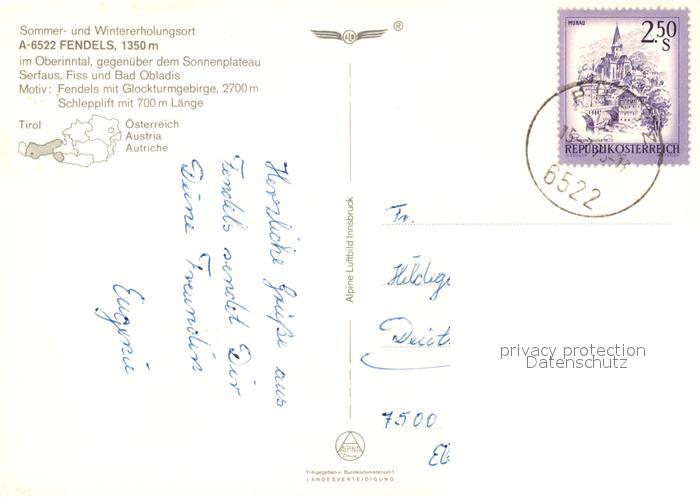 Sommer- und Wintererholungsort
A-6522 FENDELS, 1350 m
im Oberinntal, gegenüber dem Sonnenplateau
Serfaus, Fiss und Bad Obladis
Motiv: Fendels mit Glockturmgebirge, 2700 m
Schlepplift mit 700 m Länge
Tirol
Österreich
Austria
Autriche
Herzliche Grüße aus
Fendels sendet Dir
Deine Freundin
Eugenie
Alpine Luftbild Innsbruck
ALPINA
Freigegeben v. Bundesministerium f.
LANDESVERTEIDIGUNG
®
MURAU
2.50
S
REPUBLIK ÖSTERREICH
6522
Fr.
Hildeg
7500
privacy protection
Datenschutz